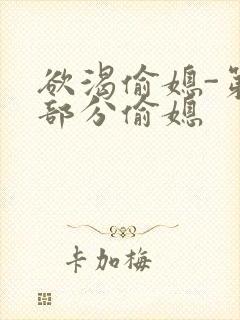 欲渴偷媳-第
部分偷媳
卡加梅